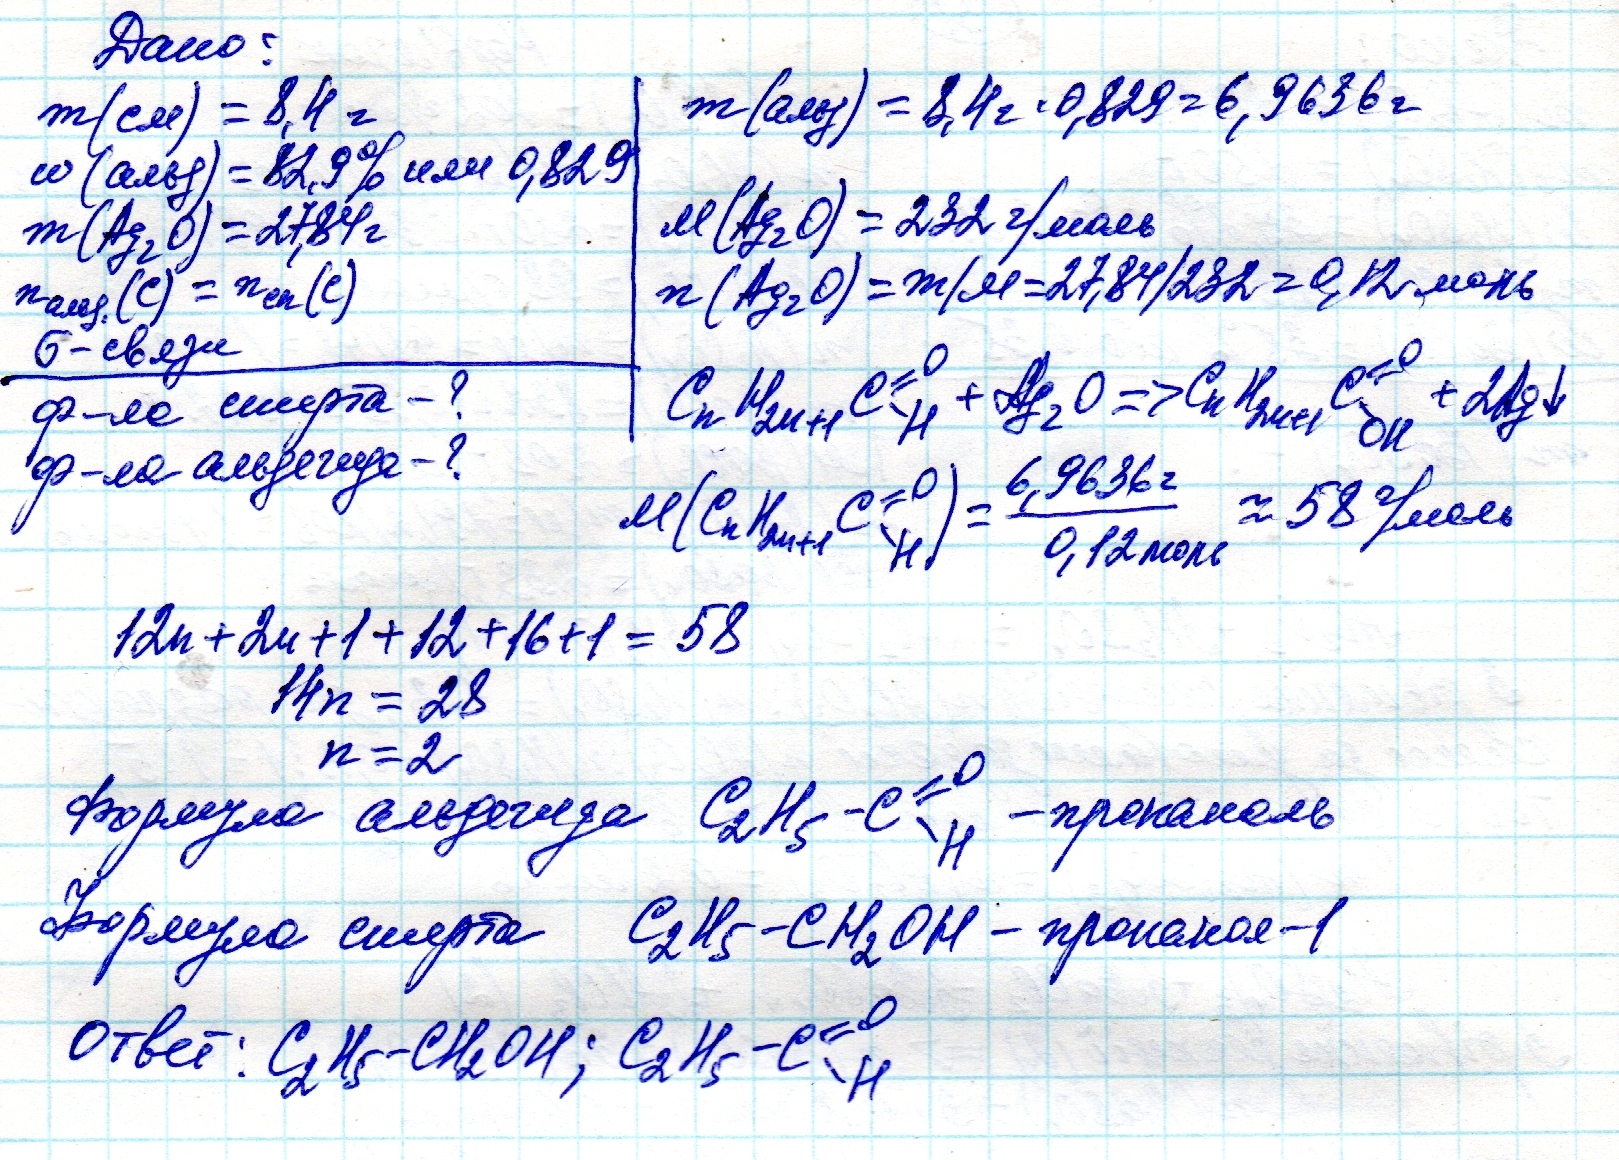 Дано:
m(см) = 8,4 г
w(альд) = 82,9% или 0,829
m(Ag₂O) = 27,84г
nальд.(C) = nсп(C)
σ-связи
ф-ла спирта - ?
ф-ла альдегида - ?
m(альд) = 8,4г · 0,829 = 6,9636г
M(Ag₂O) = 232 г/моль
n(Ag₂O) = m/M = 27,84/232 = 0,12 моль
CnH2n+1C=O H + Ag₂O => CnH2n+1C=O OH + 2Ag↓
M(CnH2n+1C=O H) = 6,9636г / 0,12 моль ≈ 58 г/моль
12n + 2n + 1 + 12 + 16 + 1 = 58
14n = 28
n = 2
Формула альдегида C₂H₅-C=O H - пропаналь
Формула спирта C₂H₅-CH₂OH - пропанол-1
Ответ: C₂H₅-CH₂OH; C₂H₅-C=O H